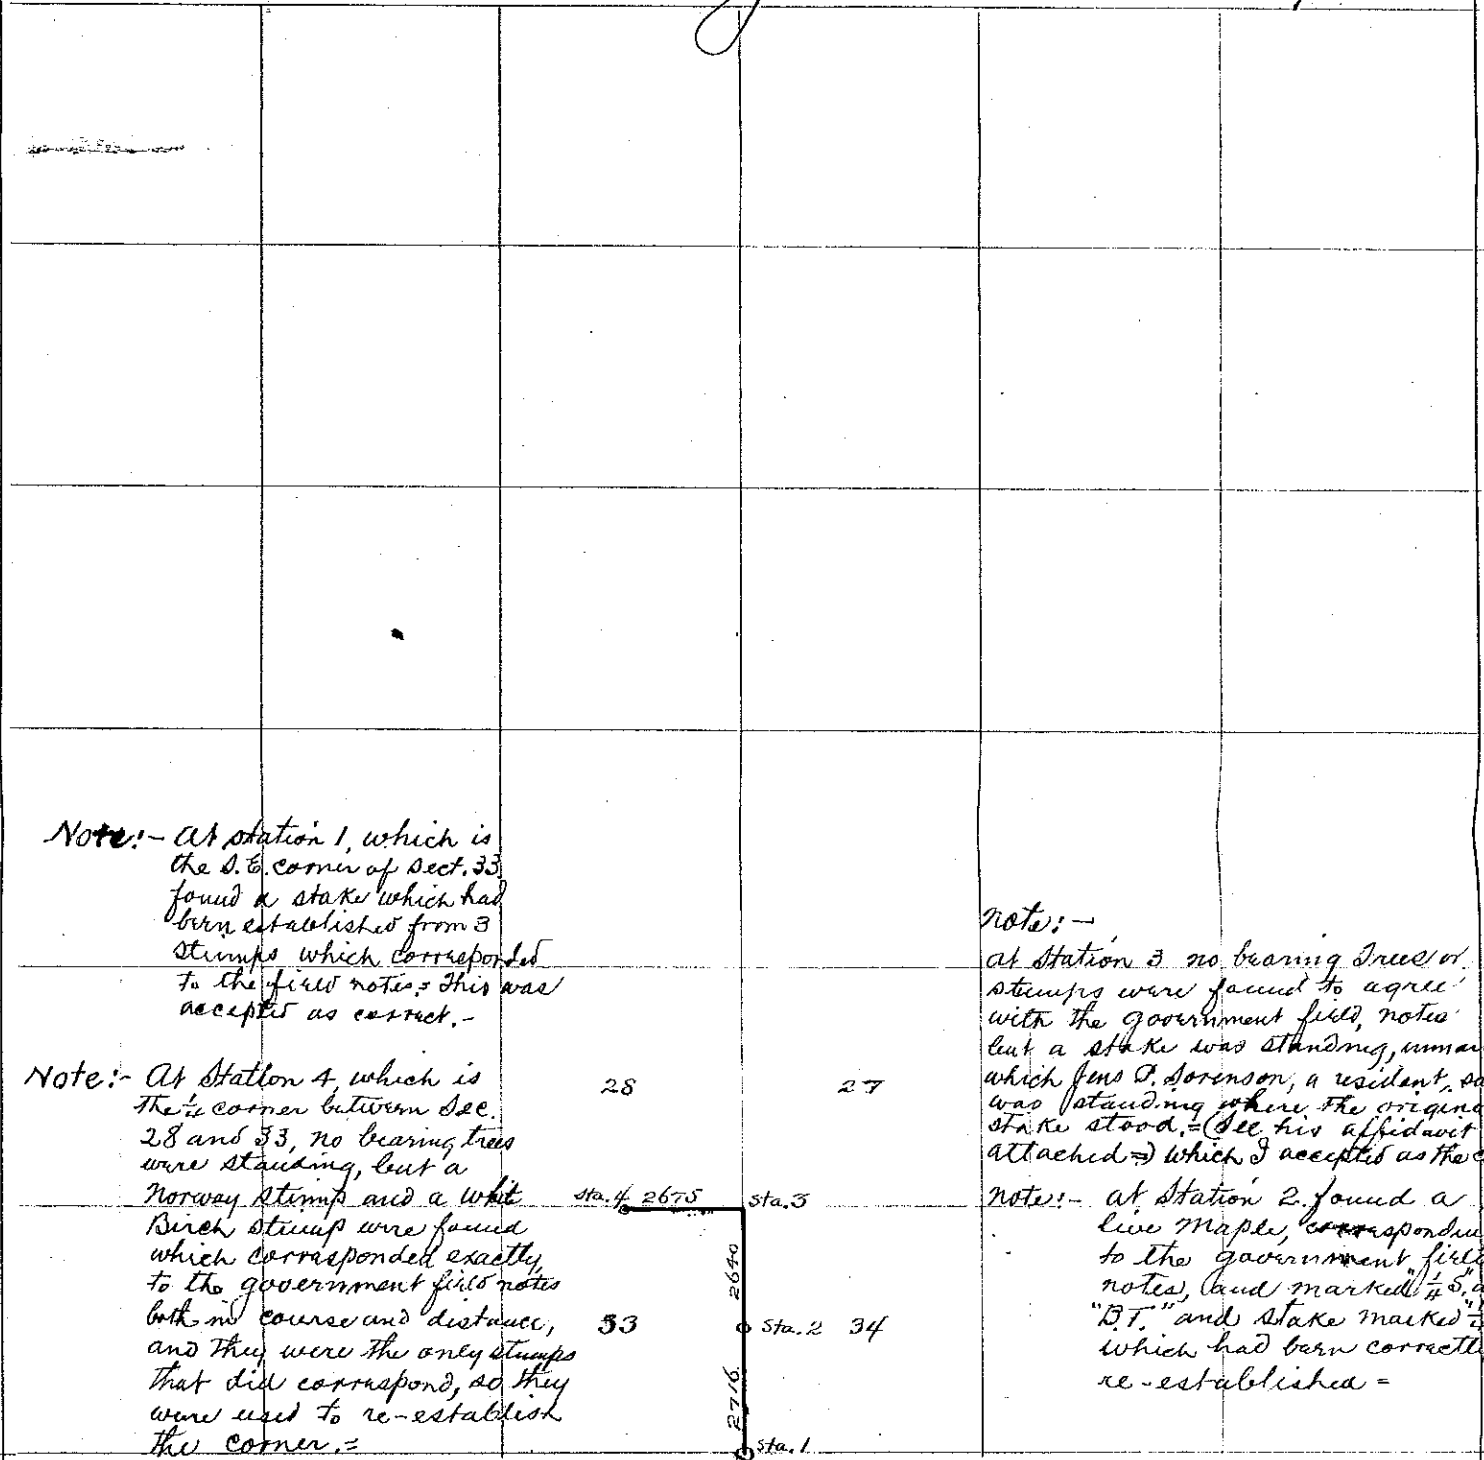 Note:- At station 1, which is
the S.E. corner of Sect. 33
found a stake which had
been established from 3
stumps which corresponded
to the field notes = This was
accepted as correct.-
Note:- At Station 4, which is
the ¼ corner between Sec.
28 and 33, no bearing trees
were standing, but a
Norway stump and a whit
Birch stump were found
which corresponded exactly
to the government field notes
both in course and distance,
and they were the only stumps
that did correspond, so they
were used to re-establish
the corner.=
28
27
sta. 4 2675 sta. 3
2640
33
Sta. 2 34
2716
Sta. 1
note:-
at Station 3 no bearing Trees or
stumps were found to agree
with the government field, notes
but a stake was standing, unmar
which Jens P. Sorenson, a resident, sa
was standing where the origina
stake stood.=(See his affidavit
attached=) which I accepted as the c
note:- at Station 2 found a
live Maple, correspondin
to the government field
notes, and marked "¼ S." a
"B.T." and stake marked "¼
which had been correctl
re-established =